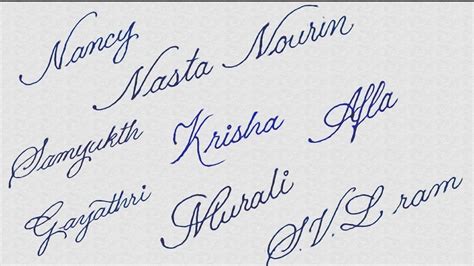 Nancy
Nasta Nourin
Samyukth Krisha Afla
Gayathri Murali S.V.L ram